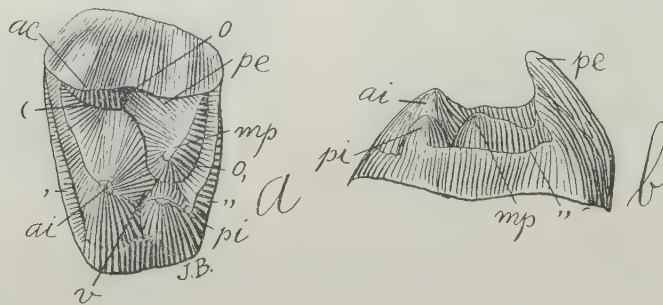 ac
o
pe
(
mp
o,
,
"
a
ai
pi
J.B.
v
pe
ai
pi
mp
"
b